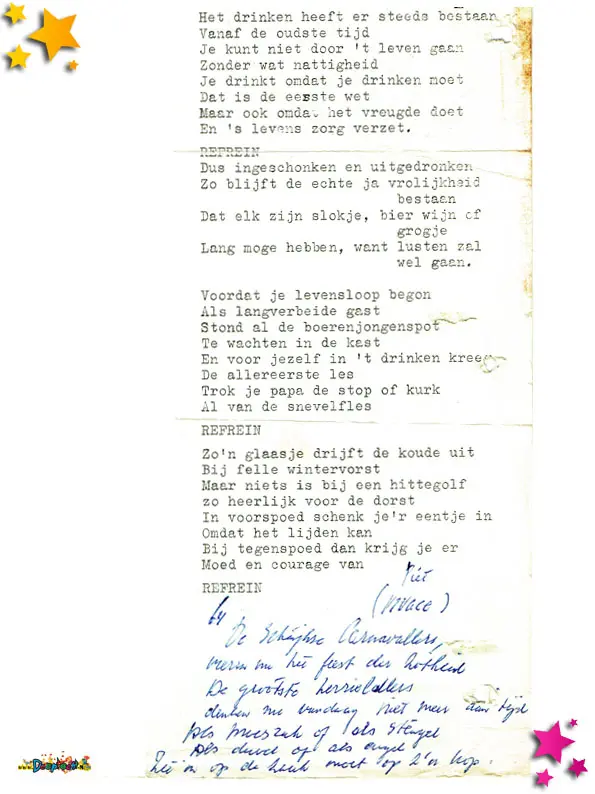 Het drinken heeft er steeds bestaan
Vanaf de oudste tijd
Je kunt niet door 't leven gaan
Zonder wat nattigheid
Je drinkt omdat je drinken moet
Dat is de eerste wet
Maar ook omdat het vreugde doet
En 's levens zorg verzet.
REFREIN
Dus ingeschonken en uitgedronken
Zo blijft de echte ja vrolijkheid
bestaan
Dat elk zijn slokje, bier wijn of
grogje
Lang moge hebben, want lusten zal
wel gaan.
Voordat je levensloop begon
Als langverbeide gast
Stond al de boerenjongenspot
Te wachten in de kast
En voor jezelf in 't drinken kreeg
De allereerste les
Trok je papa de stop of kurk
Al van de snevelfles
REFREIN
Zo'n glaasje drijft de koude uit
Bij felle wintervorst
Maar niets is bij een hittegolf
zo heerlijk voor de dorst
In voorspoed schenk je'r eentje in
Omdat het lijden kan
Bij tegenspoed dan krijg je er
Moed en courage van
REFREIN
Piet
De Carnavallers,
vieren nu het feest der
De grootste
denken we vandaag niet meer aan tijd
Als of als Stengel
Als duivel op als engel
op de moet op z'n kop.